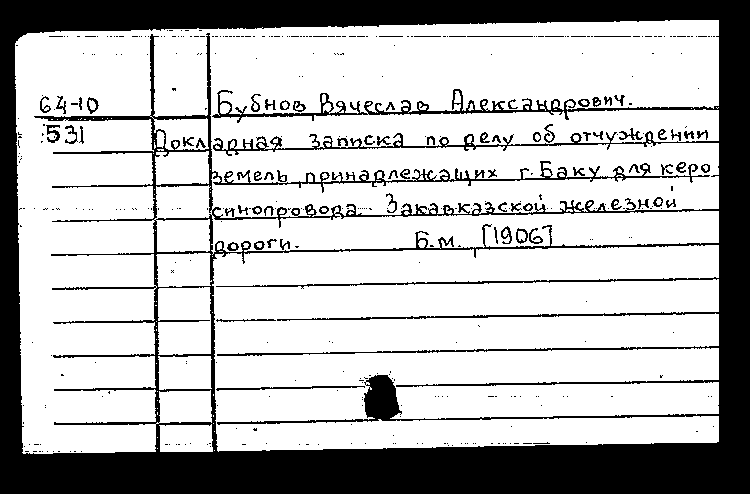 64-10 Бубнов, Вячеслав Александрович.
531 Докладная записка по делу об отчуждении
земель, принадлежащих г. Баку для керо
синопровода Закавказской железной
дороги. Б.м. [1906].